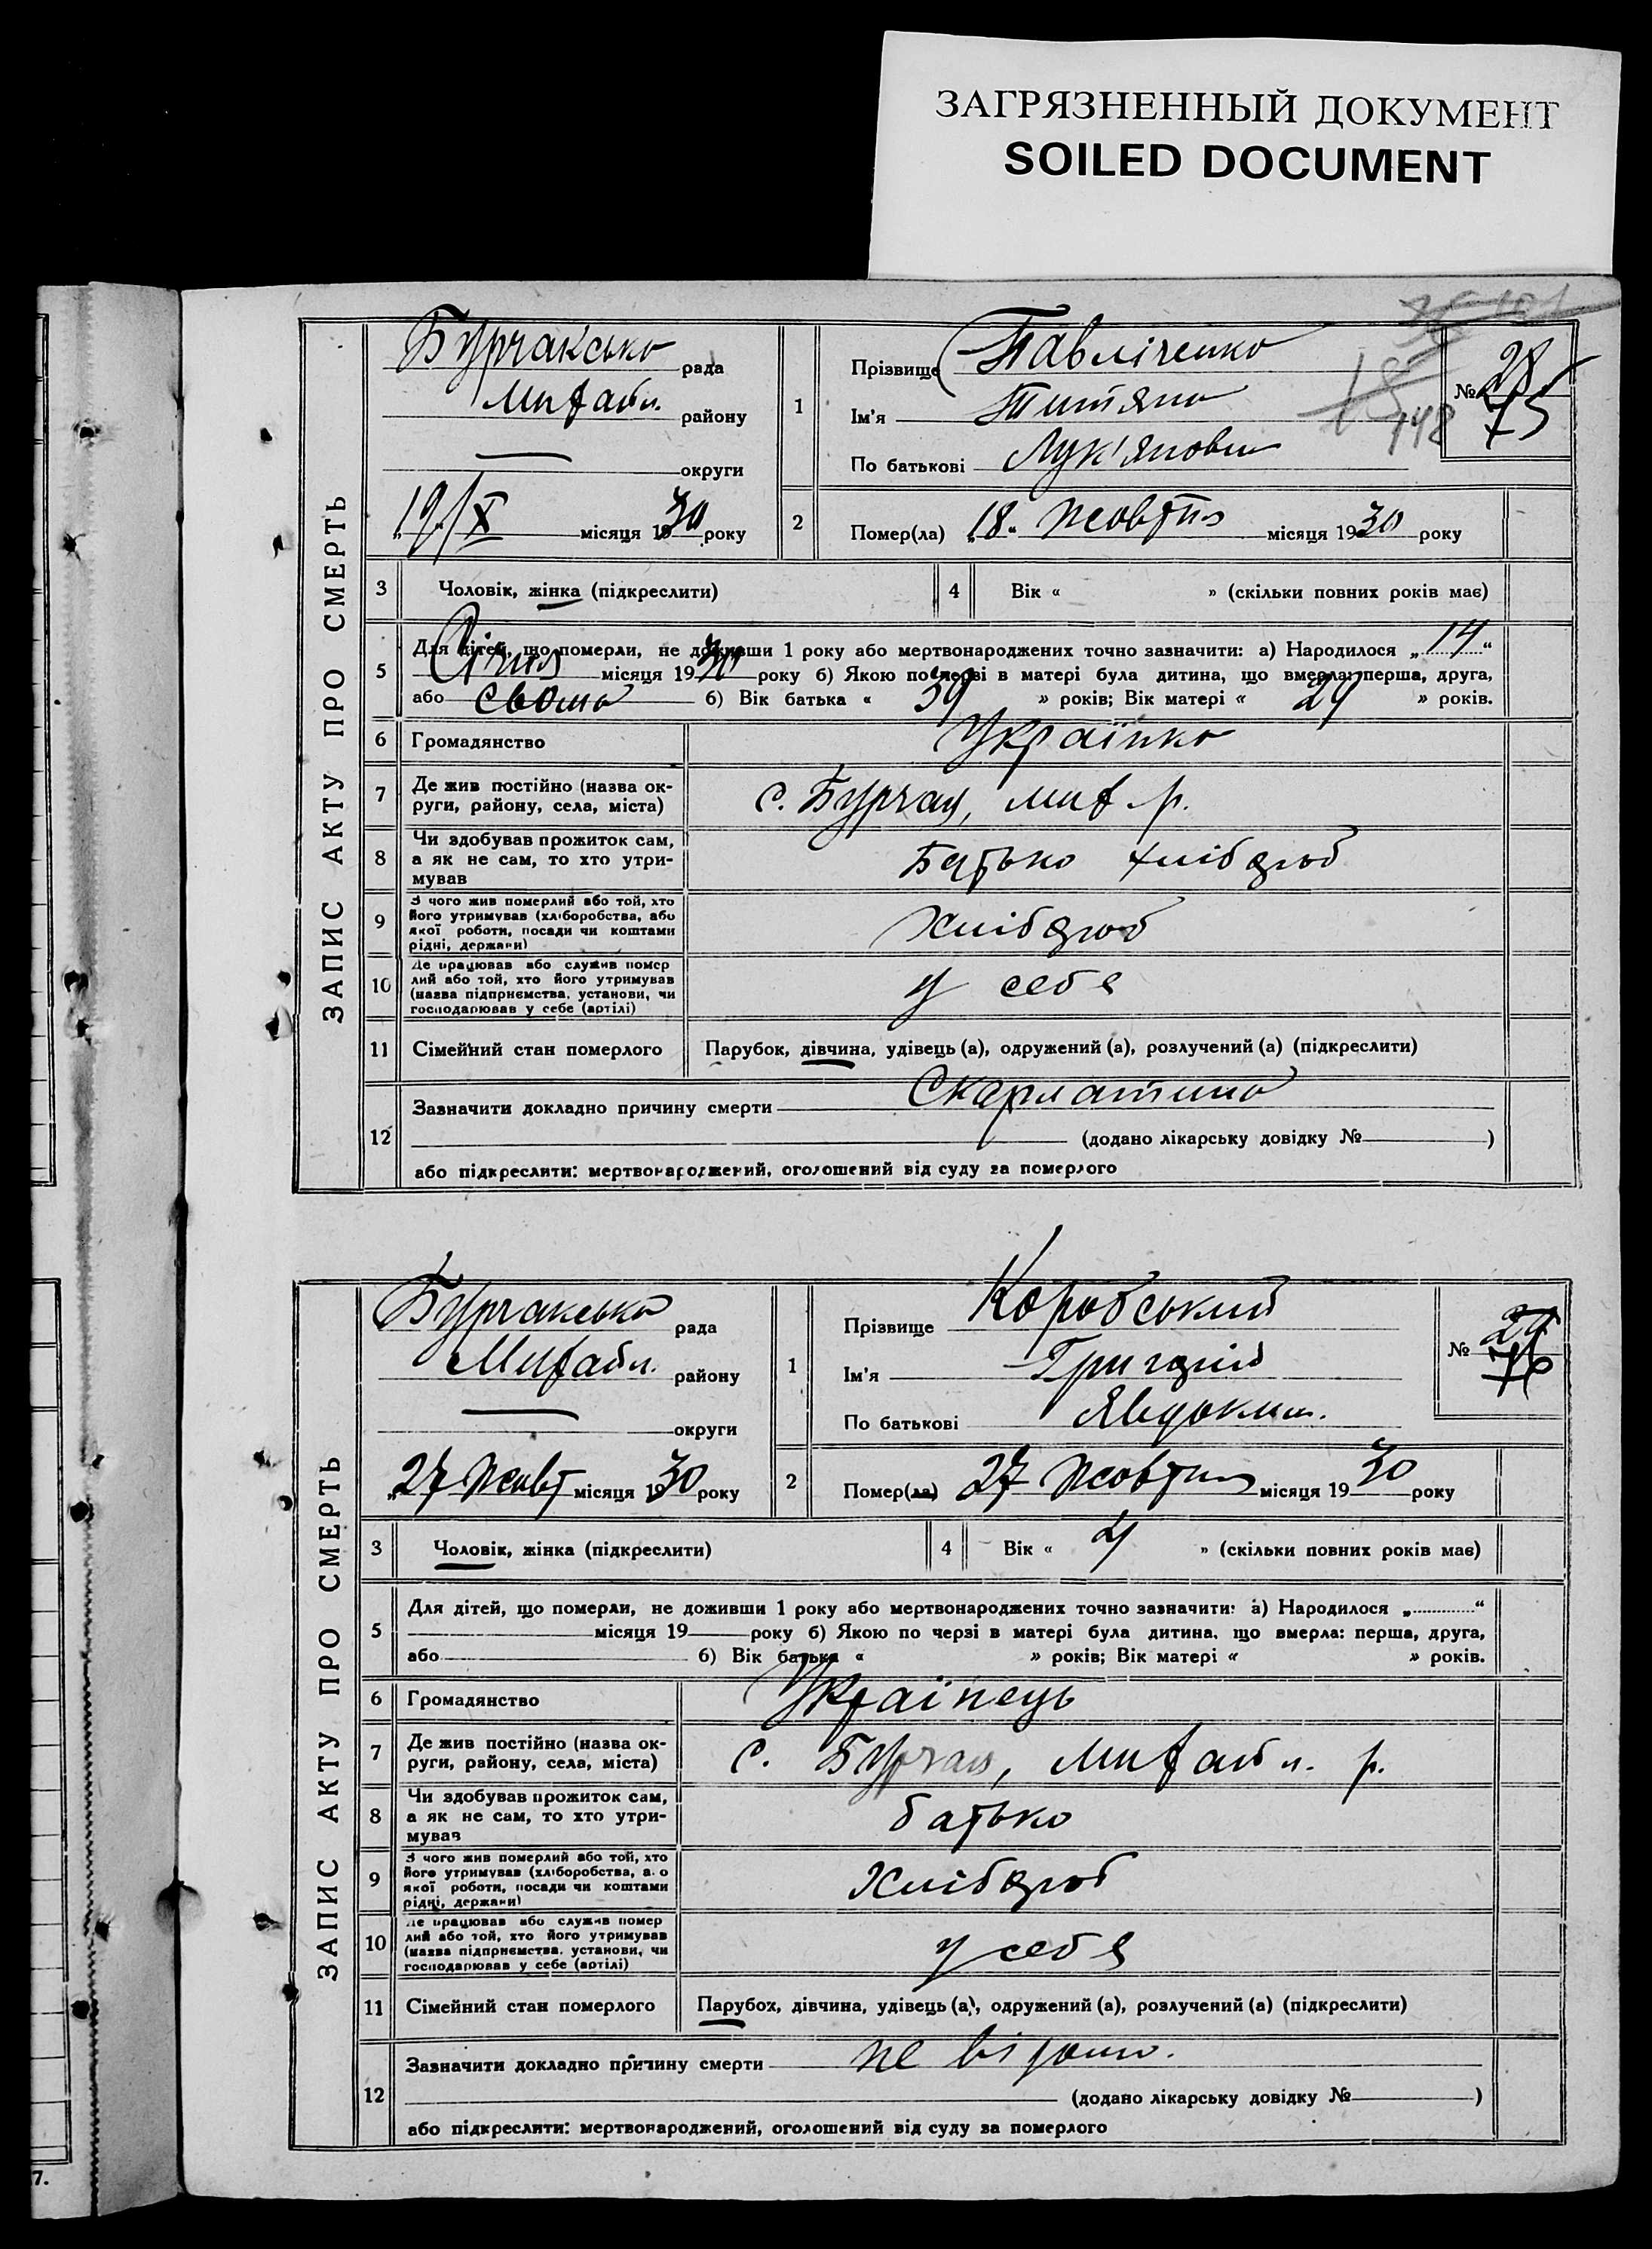 ЗАГРЯЗНЕННЫЙ ДОКУМЕНТ
SOILED DOCUMENT
ЗАПИС АКТУ ПРО СМЕРТЬ
Бурчакська рада
района
округи
19/X місяця 1930 року
1
Прізвище Павліченко
Ім'я Титяна
По батькові Лук'яновна
№ 28
75
148
2
Помер(ла) „18“ Жовтня місяця 1930 року
3 Чоловік, жінка (підкреслити)
4 Вік « » (скільки повних років має)
5 Для дітей, що померли, не доживши 1 року або мертвонароджених точно зазначити: а) Народилося „14“
Січня місяця 1930 року б) Якою по черзі в матері була дитина, що вмерла: перша, друга,
або сьома б) Вік батька « 39 » років; Вік матері « 29 » років.
6 Громадянство Українка
7 Де жив постійно (назва округи, району, села, міста) с. Бурчак, Мих р.
8 Чи здобував прожиток сам, а як не сам, то хто утримував Батько хлібороб
9 З чого жив померлий або той, хто його утримував (хліборобства, або якої роботи, посади чи коштами рідні, держави) Хлібороб
10 Де працював або служив помер лий або той, хто його утримував (назва підприємства, установи, чи господарював у себе (артілі) у себе
11 Сімейний стан померлого Парубок, дівчина, удівець (а), одружений (а), розлучений (а) (підкреслити)
12 Зазначити докладно причину смерти Скарлатина
(додано лікарську довідку № )
або підкреслити: мертвонароджений, оголошений від суду за померлого
ЗАПИС АКТУ ПРО СМЕРТЬ
Бурчакська рада
Михайл. району
округи
„27 Жовт місяця 1930 року
1
Прізвище Коробський
Ім'я Григорій
По батькові Явдоким.
№ 29
76
2
Помер(ла) 27 Жовтня місяця 1930 року
3 Чоловік, жінка (підкреслити)
4 Вік « 4 » (скільки повних років має)
5 Для дітей, що померли, не доживши 1 року або мертвонароджених точно зазначити: а) Народилося „ “
місяця 19 року б) Якою по черзі в матері була дитина, що вмерла: перша, друга,
або б) Вік батька « » років; Вік матері « » років.
6 Громадянство Українець
7 Де жив постійно (назва округи, району, села, міста) с. Бурчак, Михайл. р.
8 Чи здобував прожиток сам, а як не сам, то хто утримував батько
9 З чого жив померлий або той, хто його утримував (хліборобства, або якої роботи, посади чи коштами рідні, держави) Хлібороб
10 Де працював або служив помер лий або той, хто його утримував (назва підприємства, установи, чи господарював у себе (артілі) у себе
11 Сімейний стан померлого Парубок, дівчина, удівець (а), одружений (а), розлучений (а) (підкреслити)
12 Зазначити докладно причину смерти не відомо.
(додано лікарську довідку № )
або підкреслити: мертвонароджений, оголошений від суду за померлого
7.